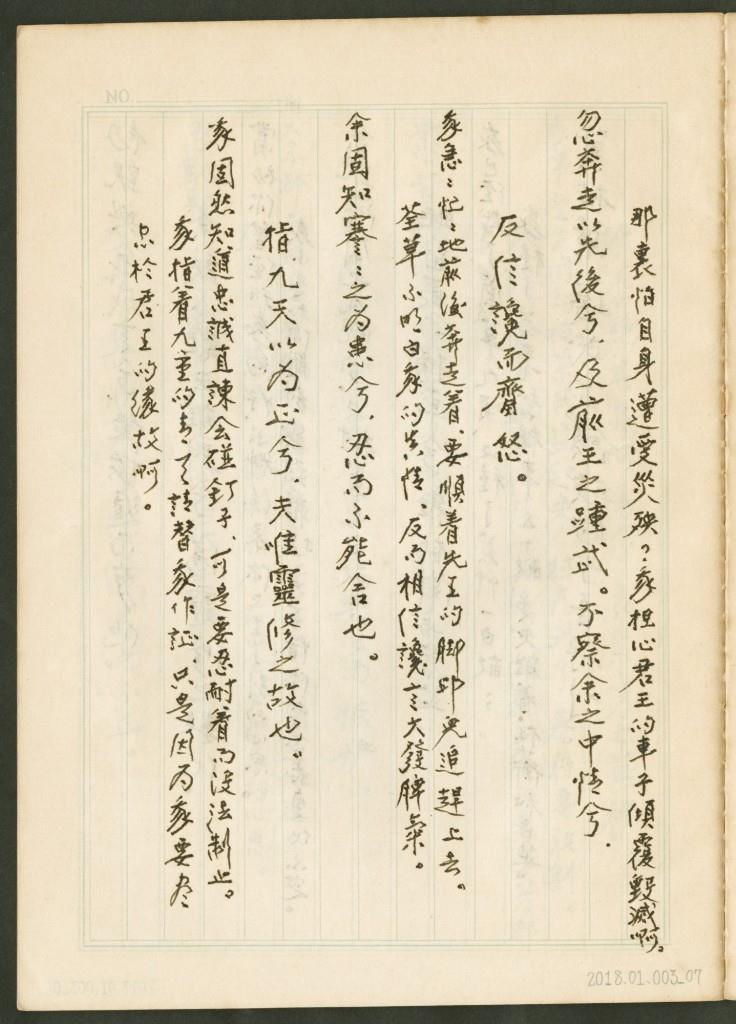 那裏怕自身遭受災殃？我担心君王的車子傾覆毀滅啊。
忽奔走以先後兮，及前王之踵武。不察余之中情兮，
反信讒而齌怒。
我急〻忙〻地前後奔走着，要順着先王的脚印兒追趕上去。
荃草不明白我的真情、反而相信讒言大發脾氣。
余固知謇〻之為患兮，忍而不能舍也。
指九天以為正兮，夫唯靈修之故也。
我固然知道忠誠直諫会碰釘子、可是要忍耐着而沒法制止。
我指着九重的青天請替我作証、只是因為我要尽
忠於君王的緣故啊。
NO.
2018.01.003_07